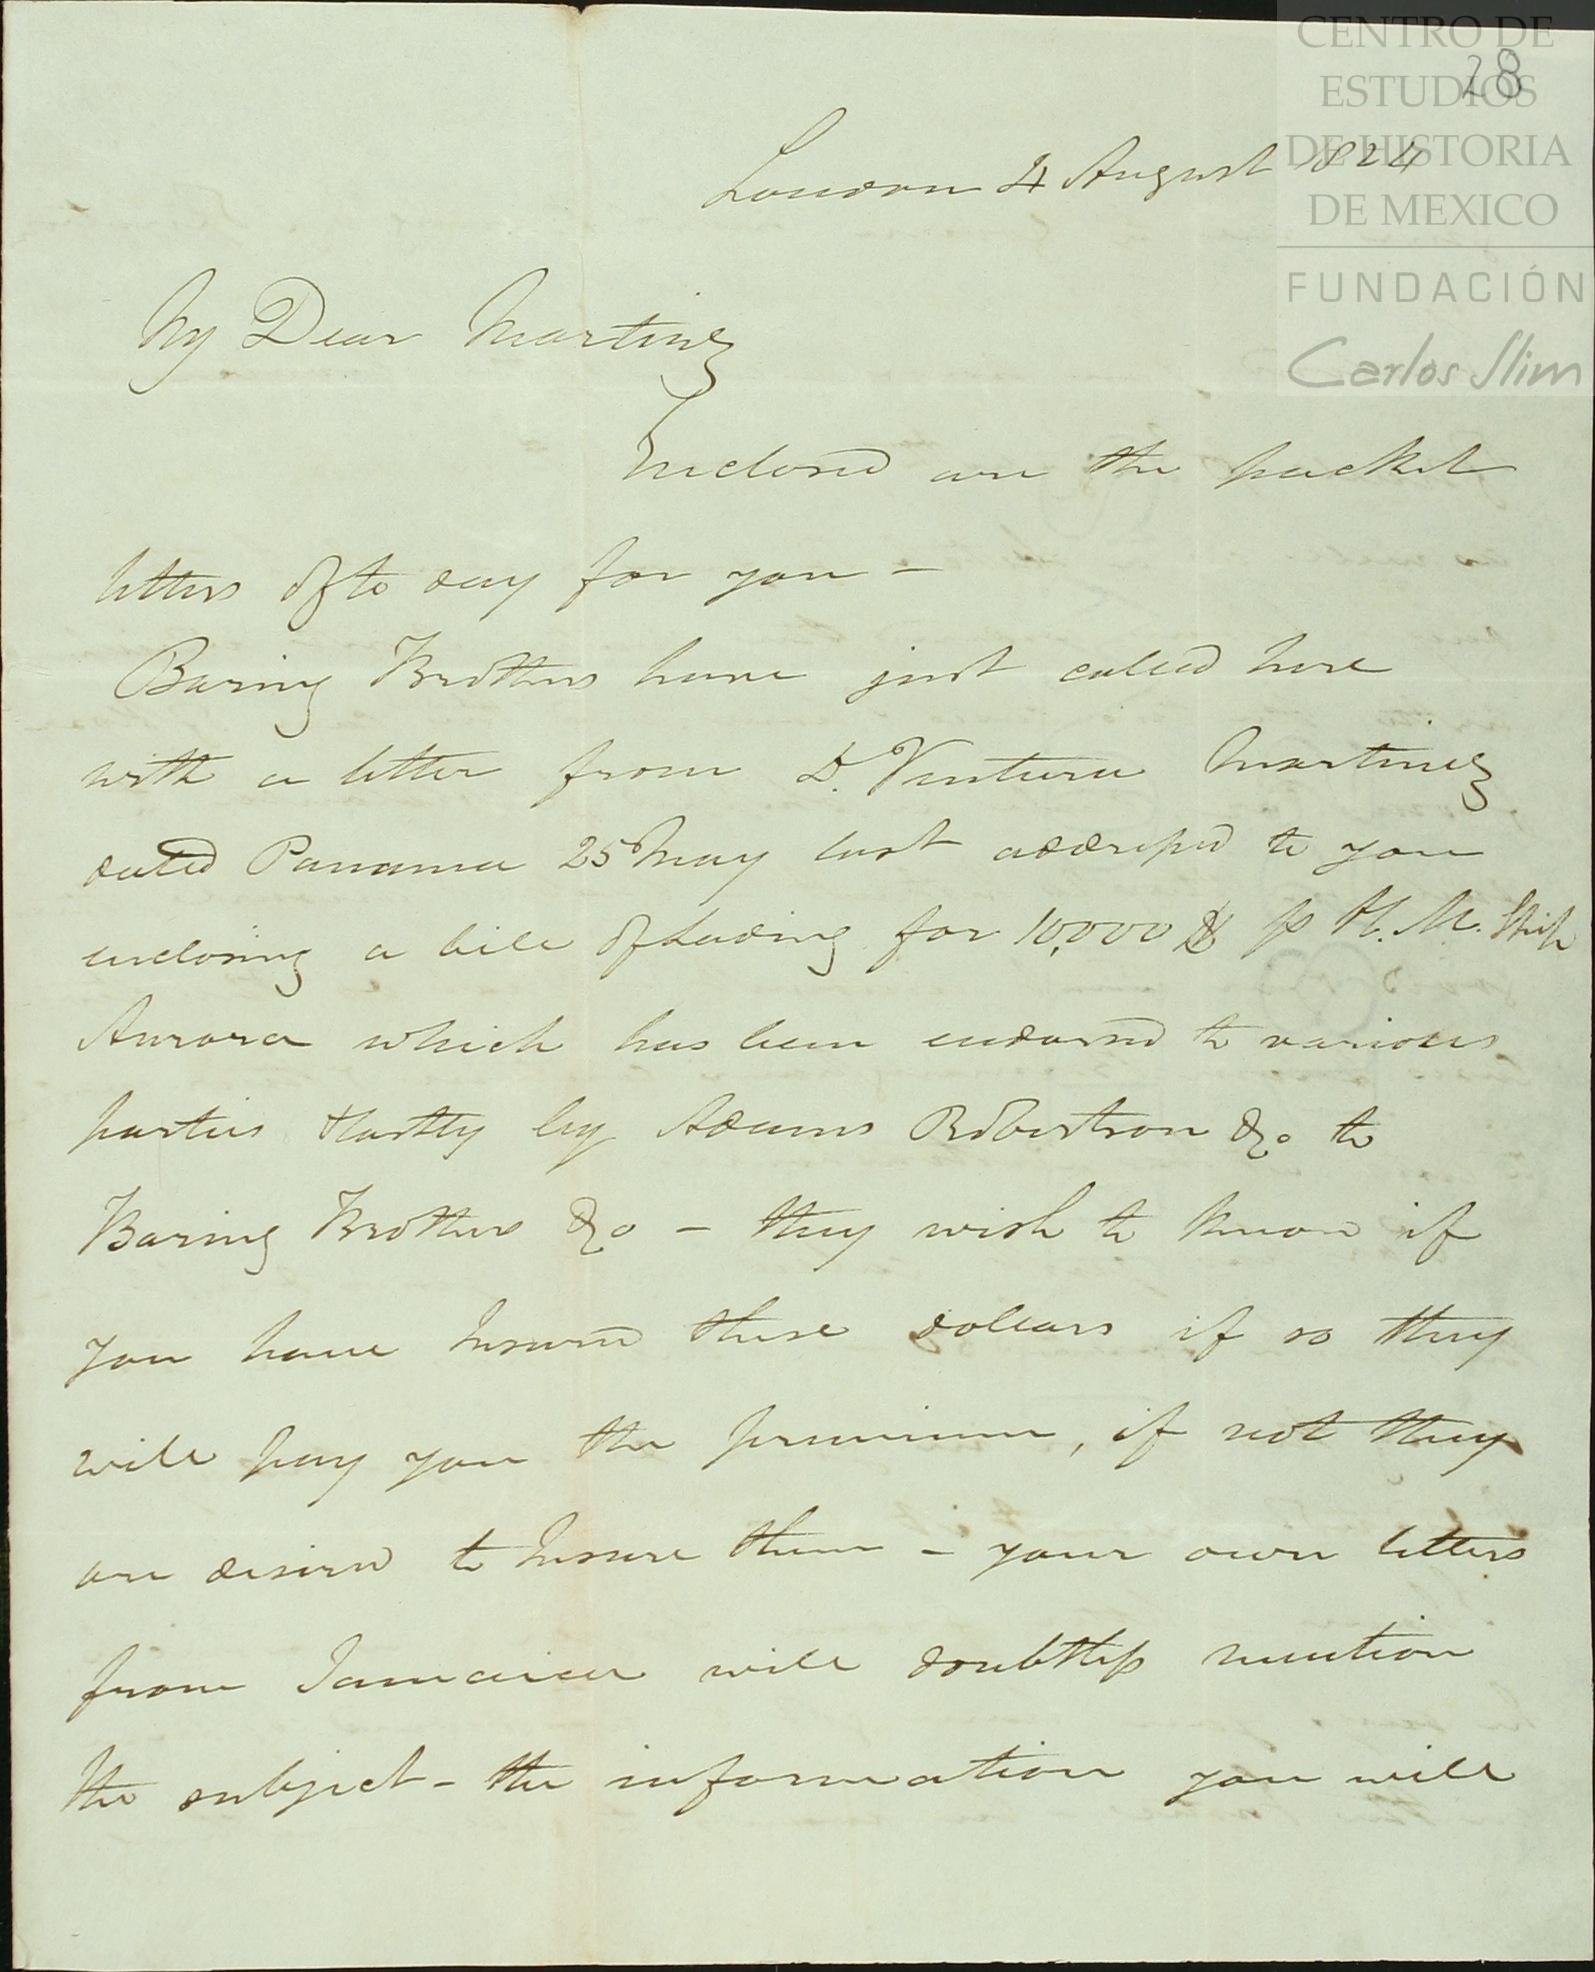 CENTRO DE
ESTUDIOS
DE HISTORIA
DE MEXICO
FUNDACIÓN
Carlos Slim
28
London 4 August 1824
My Dear Martinez
Enclosed are the packet
letters of to day for you –
Baring Brothers have just called here
with a letter from D. Ventura Martinez
dated Panama 25 May last addressed to you
enclosing a bill of Lading for 10,000 $ p H. M. Ship
Aurora which has been endorsed to various
parties & lastly by Adams Robertson &Co to
Baring Brothers &Co – they wish to know if
you have Insured these dollars if so they
will pay you the premium, if not they
are desired to Insure them – your own letters
from Jamaica will doubtless mention
the subject – the information you will